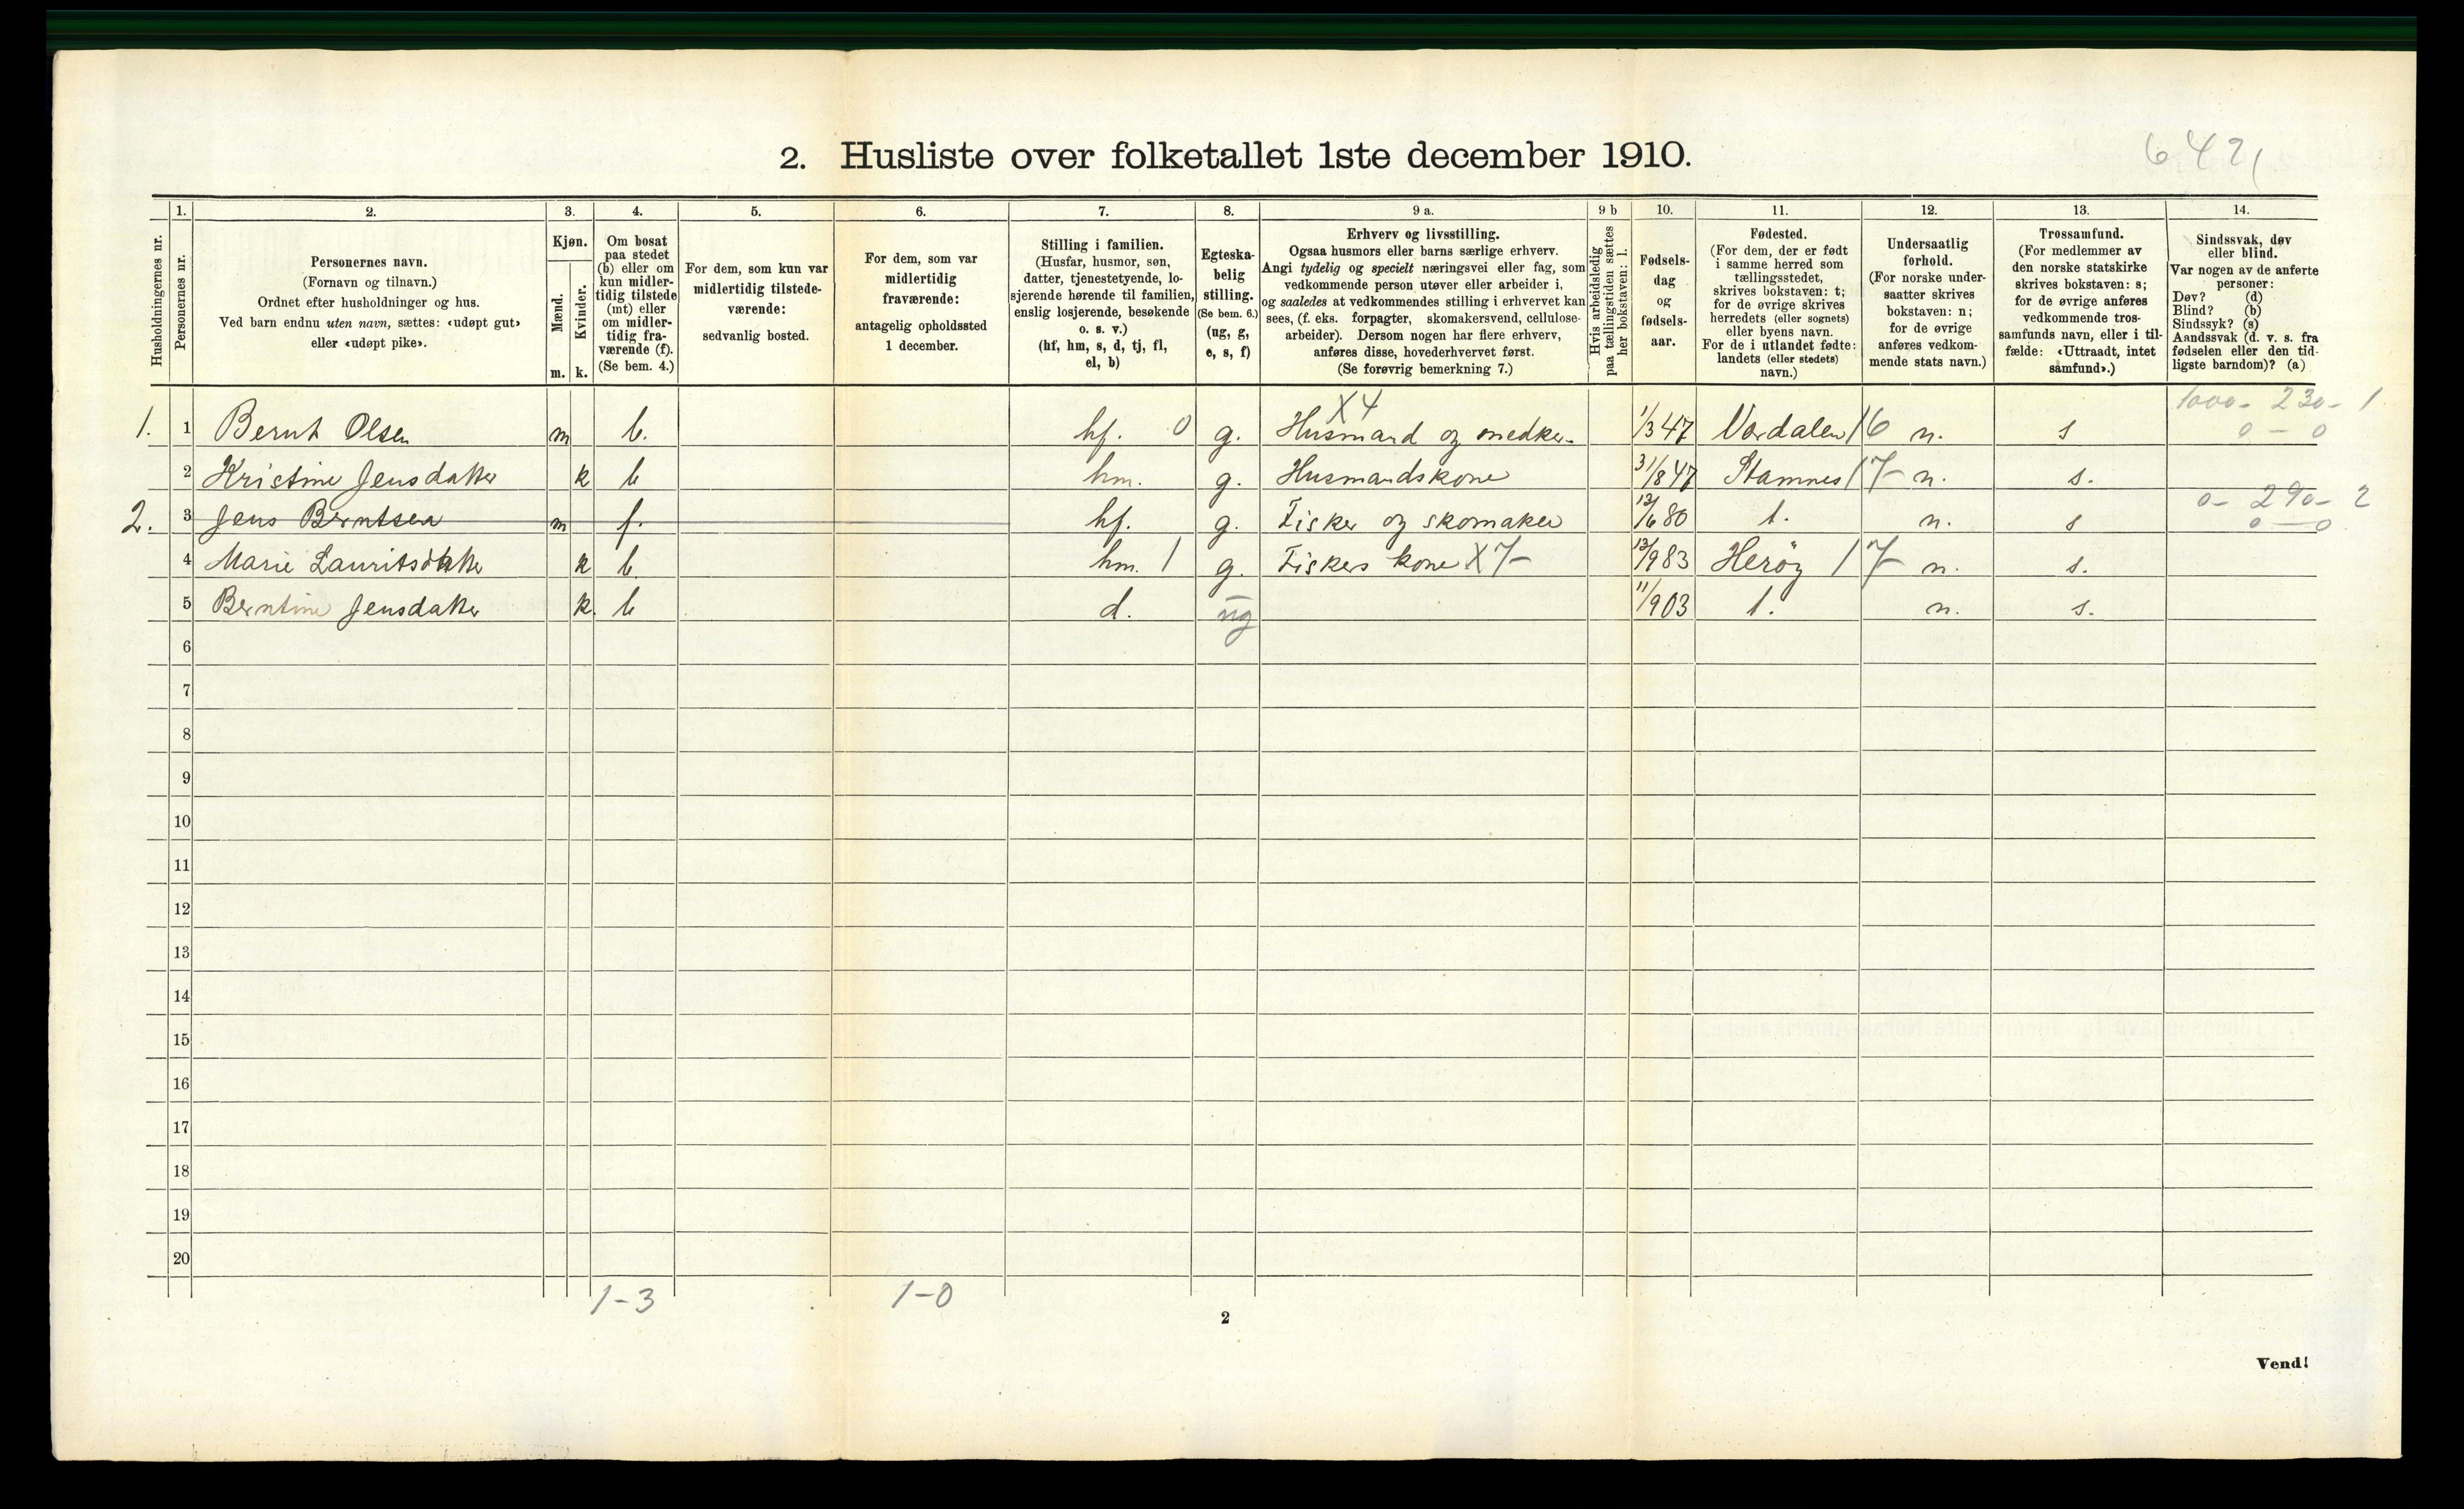 6421
2. Husliste over folketallet 1ste december 1910.
Husholdningernes nr.
1.
Personernes nr.
2.
Personernes navn.
(Fornavn og tilnavn.)
Ordnet efter husholdninger og hus.
Ved barn endnu uten navn, sættes: «udøpt gut»
eller «udøpt pike».
3.
Kjøn.
Mænd.
Kvinder.
m. k.
4.
Om bosat
paa stedet
(b) eller om
kun midler-
tidig tilstede
(mt) eller
om midler-
tidig fra-
værende (f).
(Se bem. 4.)
5.
For dem, som kun var
midlertidig tilstede-
værende:
sedvanlig bosted.
6.
For dem, som var
midlertidig
fraværende:
antagelig opholdssted
1 december.
7.
Stilling i familien.
(Husfar, husmor, søn,
datter, tjenestetyende, lo-
sjerende hørende til familien,
enslig losjerende, besøkende
o. s. v.)
(hf, hm, s, d, tj, fl,
el, b)
8.
Egteska-
belig
stilling.
(Se bem. 6.)
(ug, g,
e, s, f)
9 a.
Erhverv og livsstilling.
Ogsaa husmors eller barns særlige erhverv.
Angi tydelig og specielt næringsvei eller fag, som
vedkommende person utøver eller arbeider i,
og saaledes at vedkommendes stilling i erhvervet kan
sees, (f. eks. forpagter, skomakersvend, cellulose-
arbeider). Dersom nogen har flere erhverv,
anføres disse, hovederhvervet først.
(Se forøvrig bemerkning 7.)
9 b
Hvis arbeidsledig
paa tællingstiden sættes
her bokstaven: l.
10.
Fødsels-
dag
og
fødsels-
aar.
11.
Fødested.
(For dem, der er født
i samme herred som
tællingsstedet,
skrives bokstaven: t;
for de øvrige skrives
herredets (eller sognets)
eller byens navn.
For de i utlandet fødte:
landets (eller stedets)
navn.)
12.
Undersaatlig
forhold.
(For norske under-
saatter skrives
bokstaven: n;
for de øvrige
anføres vedkom-
mende stats navn.)
13.
Trossamfund.
(For medlemmer av
den norske statskirke
skrives bokstaven: s;
for de øvrige anføres
vedkommende tros-
samfunds navn, eller i til-
fælde: «Uttraadt, intet
samfund».)
14.
Sindssvak, døv
eller blind.
Var nogen av de anførte
personer:
Døv? (d)
Blind? (b)
Sindssyk? (s)
Aandssvak (d. v. s. fra
fødselen eller den tid-
ligste barndom)? (a)
X4 1000 - 230 - 1
1. 1 Bernt Olsen m b. hf. 0 g. Husmand og snedker 1/3 47 Værdalen 16 n. s 0 - 0
2 Kristine Jensdatter k b hm. g. Husmandskone 31/8 47 Stamnes 17- n. s.
0 - 290 - 2
2. 3 Jens Berntsen m f. hf. g. Fisker og skomaker 13/6 80 t. n. s 0 - 0
4 Marie Lauritsdatter k b hm. 1 g. Fiskers kone X7- 13/9 83 Herøy 17- n. s.
5 Berntine Jensdatter k. b d. ug 11/9 03 t. n. s.
6
7
8
9
10
11
12
13
14
15
16
17
18
19
20
1-3 1-0
2
Vend!